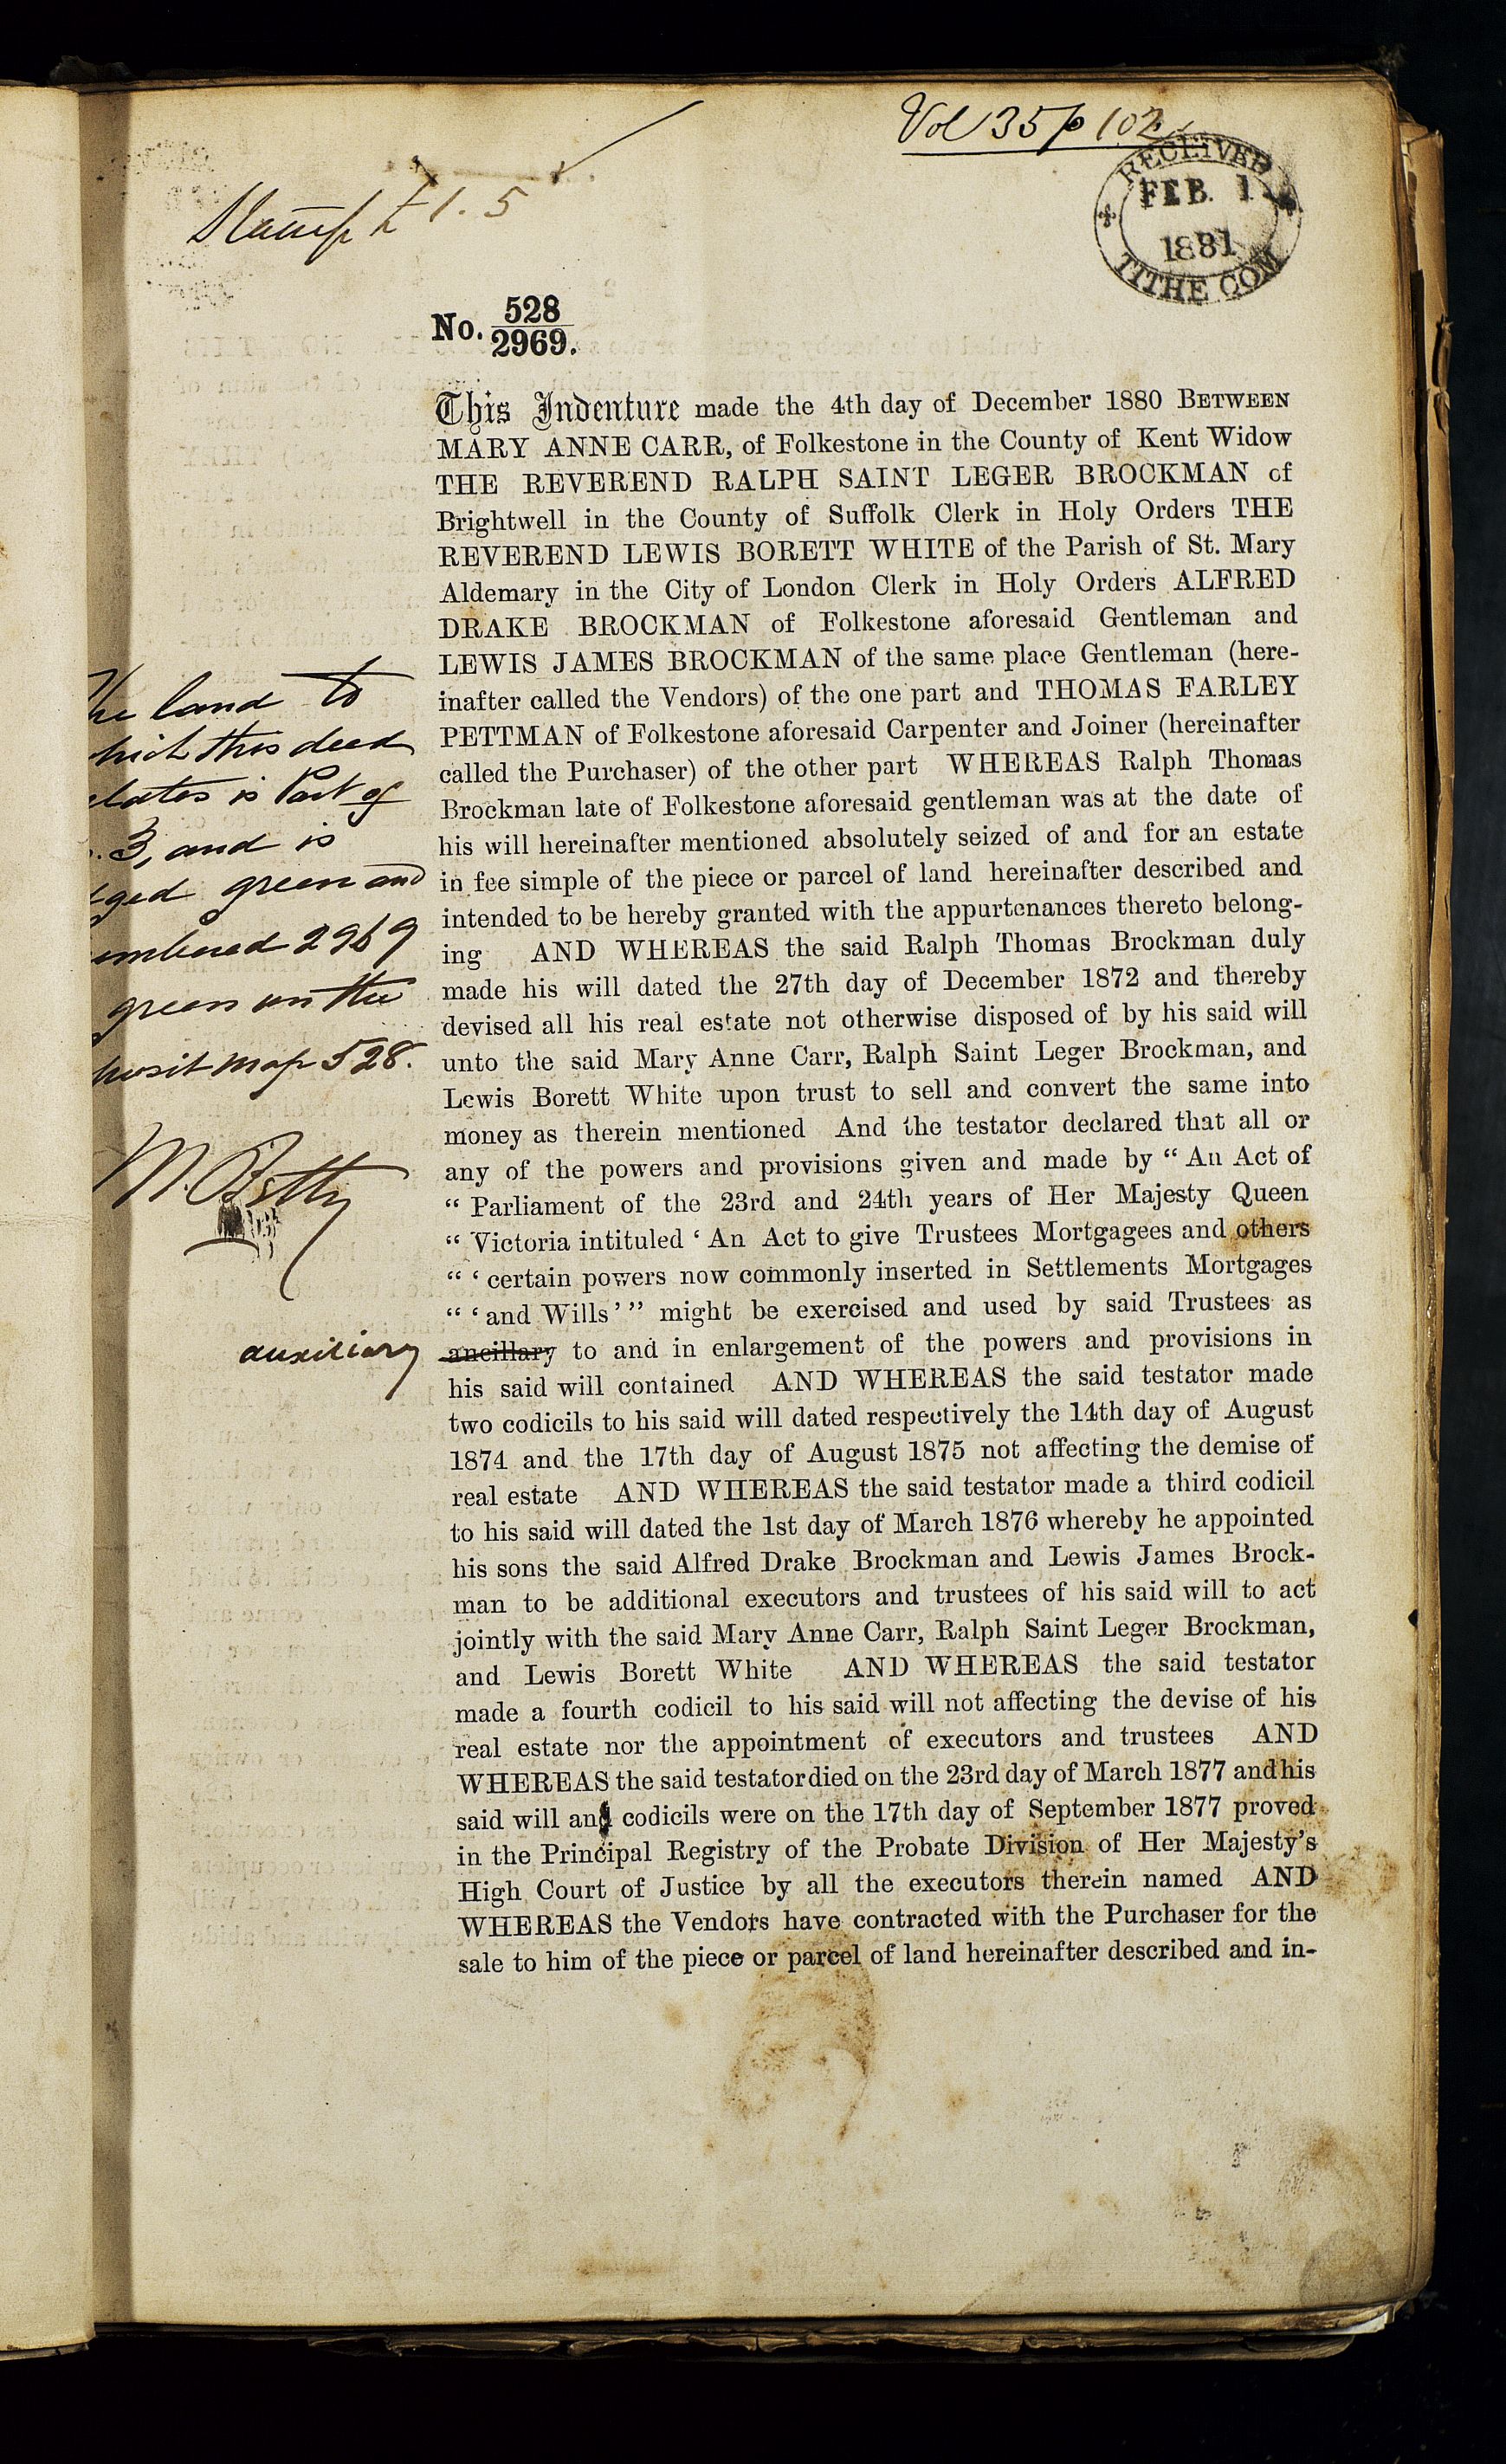 Vol 35 p 102
RECEIVED
FEB. 1
1881
TITHE COM
Stamp £1.5
No. 528
2969.
This Indenture made the 4th day of December 1880 BETWEEN
MARY ANNE CARR, of Folkestone in the County of Kent Widow
THE REVEREND RALPH SAINT LEGER BROCKMAN of
Brightwell in the County of Suffolk Clerk in Holy Orders THE
REVEREND LEWIS BORETT WHITE of the Parish of St. Mary
Aldemary in the City of London Clerk in Holy Orders ALFRED
DRAKE BROCKMAN of Folkestone aforesaid Gentleman and
LEWIS JAMES BROCKMAN of the same place Gentleman (here-
inafter called the Vendors) of the one part and THOMAS FARLEY
PETTMAN of Folkestone aforesaid Carpenter and Joiner (hereinafter
called the Purchaser) of the other part WHEREAS Ralph Thomas
Brockman late of Folkestone aforesaid gentleman was at the date of
his will hereinafter mentioned absolutely seized of and for an estate
in fee simple of the piece or parcel of land hereinafter described and
intended to be hereby granted with the appurtenances thereto belong-
ing AND WHEREAS the said Ralph Thomas Brockman duly
made his will dated the 27th day of December 1872 and thereby
devised all his real estate not otherwise disposed of by his said will
unto the said Mary Anne Carr, Ralph Saint Leger Brockman, and
Lewis Borett White upon trust to sell and convert the same into
money as therein mentioned And the testator declared that all or
any of the powers and provisions given and made by “ An Act of
“ Parliament of the 23rd and 24th years of Her Majesty Queen
“ Victoria intituled ‘ An Act to give Trustees Mortgagees and others
“ ‘ certain powers now commonly inserted in Settlements Mortgages
“ ‘ and Wills ’ ” might be exercised and used by said Trustees as
ancillary to and in enlargement of the powers and provisions in
his said will contained AND WHEREAS the said testator made
two codicils to his said will dated respectively the 14th day of August
1874 and the 17th day of August 1875 not affecting the demise of
real estate AND WHEREAS the said testator made a third codicil
to his said will dated the 1st day of March 1876 whereby he appointed
his sons the said Alfred Drake Brockman and Lewis James Brock-
man to be additional executors and trustees of his said will to act
jointly with the said Mary Anne Carr, Ralph Saint Leger Brockman,
and Lewis Borett White AND WHEREAS the said testator
made a fourth codicil to his said will not affecting the devise of his
real estate nor the appointment of executors and trustees AND
WHEREAS the said testator died on the 23rd day of March 1877 and his
said will and codicils were on the 17th day of September 1877 proved
in the Principal Registry of the Probate Division of Her Majesty's
High Court of Justice by all the executors therein named AND
WHEREAS the Vendors have contracted with the Purchaser for the
sale to him of the piece or parcel of land hereinafter described and in-
he land to
hich this deed
elates is Part of
. 3, and is
dged green and
umbered 2969
green on the
posit map 528.
auxiliary